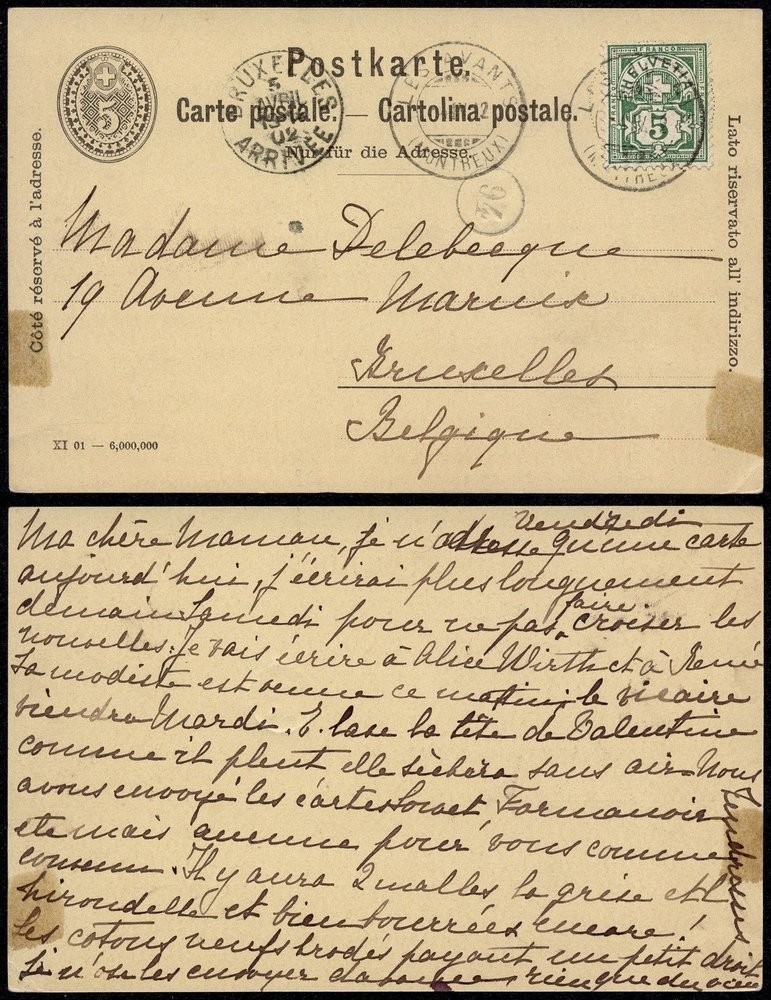 Postkarte.
Carte postale. — Cartolina postale.
Nur für die Adresse.
Côté réservé à l'adresse.
Lato riservato all' indirizzo.
5
BRUXELLES
5
AVRIL
ARRIVÉE
LES AVANTS
(MONTREUX)
FRANCO
HELVETIA
5
(MONTREUX)
Madame Delebecque
19 Avenue Marnix
Bruxelles
Belgique
XI 01 — 6,000,000
Vendredi
Ma chère Maman, je n'adresse qu'une carte
aujourd'hui, j'écrirai plus longuement
demain Samedi pour ne pas faire croiser les
nouvelles. Je vais écrire à Alice Wirth et à René
La modiste est venue ce matin; le vicaire
viendra Mardi. E. lave la tête de Valentine
comme il pleut elle sèchera sans air. Nous
avons envoyé les cartes Formanoir
etc mais aucune pour vous comme
convenu. Il y aura 2 malles la grise et l'
hirondelle et bien bourrées encore!
les cotons neufs brodés payant un petit droit
je n'ose les envoyer d'avance rien que du
Tendresses